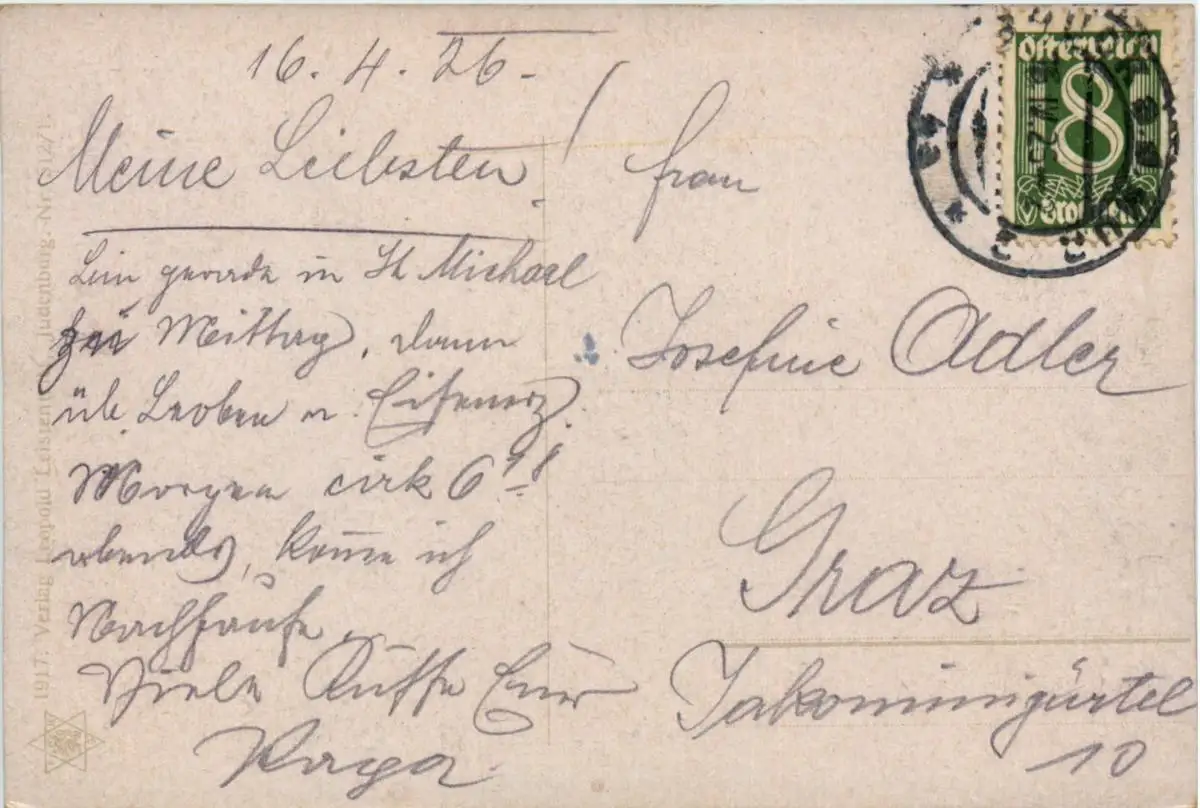 16. 4. 26.
Meine Liebsten!
Bin gerade in St. Michael
bei Mittag, dann
üb. Leoben u. Eisenerz.
Morgen cirk 6 18
abends, komme ich
Nachhause.
Viele Küsse Euer
Papa.
Frau
Josefine Adler
Graz
Jakominigürtel
10
Österreich
8
Groschen
1917. Verlag Leopold Leistentritt, Judenburg.-Nr. 012/